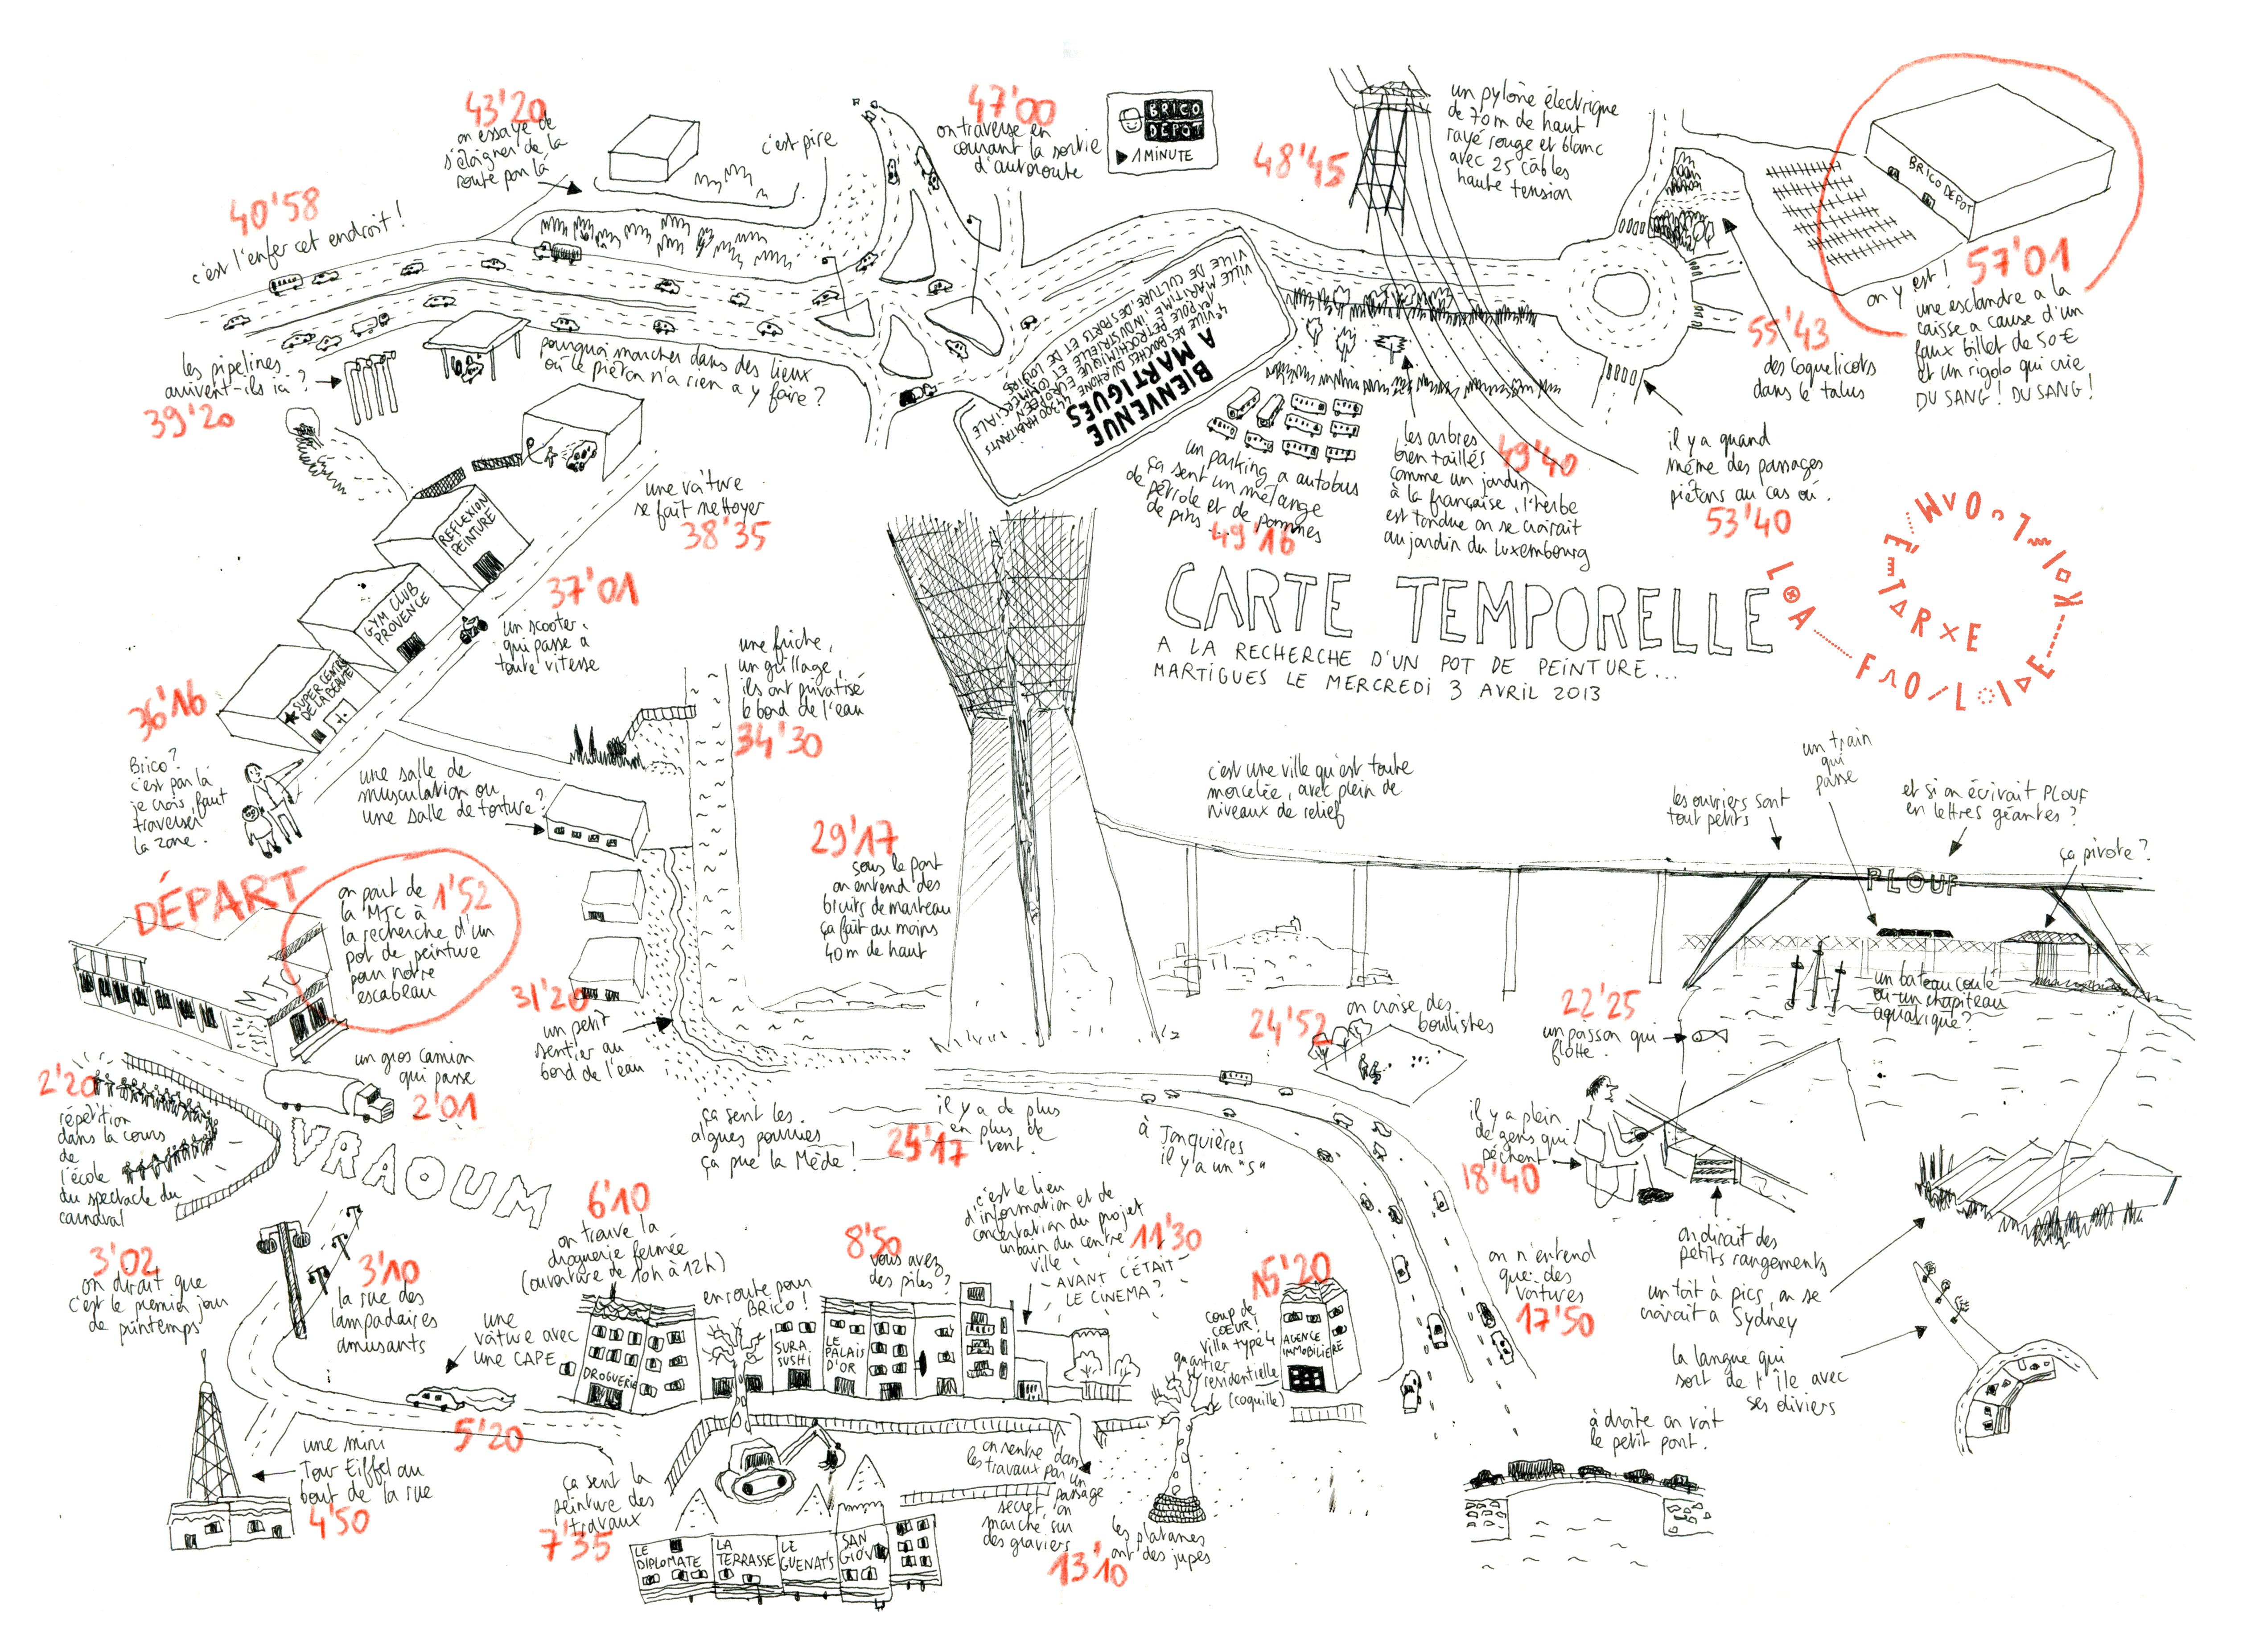 CARTE TEMPORELLE
A LA RECHERCHE D'UN POT DE PEINTURE...
MARTIGUES LE MERCREDI 3 AVRIL 2013
DÉPART
on part de 1'52
la MJC à
la recherche d'un
pot de peinture
pour notre
escabeau
MJC
un gros camion
qui passe
2'01
VRAOUM
2'20
répétition
dans la cours
de
l'école
du spectacle du
carnaval
3'02
on dirait que
c'est le premier jour
de printemps
3'10
la rue des
lampadaires
amusants
une mini
Tour Eiffel au
bout de la rue
4'50
une
voiture avec
une CAPE
5'20
6'10
on trouve la
droguerie fermée
(ouverture de 10h à 12h)
DROGUERIE
en route pour
BRICO !
SURA
SUSHI
LE
PALAIS
D'OR
ça sent la
peinture des
travaux
7'35
LE
DIPLOMATE
LA
TERRASSE
LE
GUENAT'S
SAN
GIOV
8'50
vous avez
des piles ?
c'est le lieu
d'information et de
concertation du projet
urbain du centre
ville
11'30
AVANT C'ÉTAIT
LE CINEMA ?
on rentre dans
les travaux par un
passage
secret, on
marche sur
des graviers
13'10
les platanes
ont des jupes
15'20
coup de
CŒUR !
villa type 4
quartier
residentielle
(coquille)
AGENCE
IMMOBILIERE
on n'entend
que des
voitures
17'50
à droite on voit
le petit pont.
la langue qui
sort de l'île avec
ses oliviers
un toit à pics, on se
croirait a Sydney
on dirait des
petits rangements
il y a plein
de gens qui
pêchent
18'40
22'25
un poisson qui
flotte.
un bateau coulé
ou un chapiteau
aquatique ?
les ouvriers sont
tout petits
un train
qui
passe
et si on écrivait PLOUF
en lettres géantes ?
ça pivote ?
PLOUF
24'52
on croise des
boulistes
à Jonquières
il y a un "S"
il y a de plus
en plus de
vent.
25'17
ça sent les
algues pourries
ça pue la Mède !
c'est une ville qu'est toute
morcelée, avec plein de
niveaux de relief
29'17
sous le pont
on entend des
bruits de marteau
ça fait au moins
40m de haut
31'20
un petit
sentier au
bord de l'eau
une salle de
musculation ou
une salle de torture ?
une friche,
un grillage,
ils ont privatisé
le bord de l'eau
34'30
36'16
Brico ?
c'est par là
je crois, faut
traverser
la zone.
SUPER CENTRE
DE LA BEAUTÉ
GYM CLUB
PROVENCE
REFLEXION
PEINTURE
37'01
un scooter
qui passe a
toute vitesse
une voiture
se fait nettoyer
38'35
les pipelines
arrivent-ils ici ?
39'20
pourquoi marcher dans des lieux
où le piéton n'a rien a y faire ?
40'58
c'est l'enfer cet endroit !
43'20
on essaye de
s'éloigner de la
route par là
c'est pire
47'00
on traverse en
courant la sortie
d'autoroute
BRICO
DEPOT
1 MINUTE
BIENVENUE
A MARTIGUES
48'45
un pylône électrique
de 70m de haut
rayé rouge et blanc
avec 25 câbles
haute tension
un parking a autobus
ça sent un mélange
de pétrole et de pommes
de pins...
49'16
les arbres
bien taillés 49'40
comme un jardin
à la française, l'herbe
est tondue on se croirait
au jardin du Luxembourg
il y a quand
même des passages
piétons au cas où.
53'40
55'43
des coquelicots
dans le talus
BRICO DEPOT
57'01
on y est !
une esclandre a la
caisse a cause d'un
faux billet de 50€
et un rigolo qui crie
DU SANG ! DU SANG !
LA FOLIE